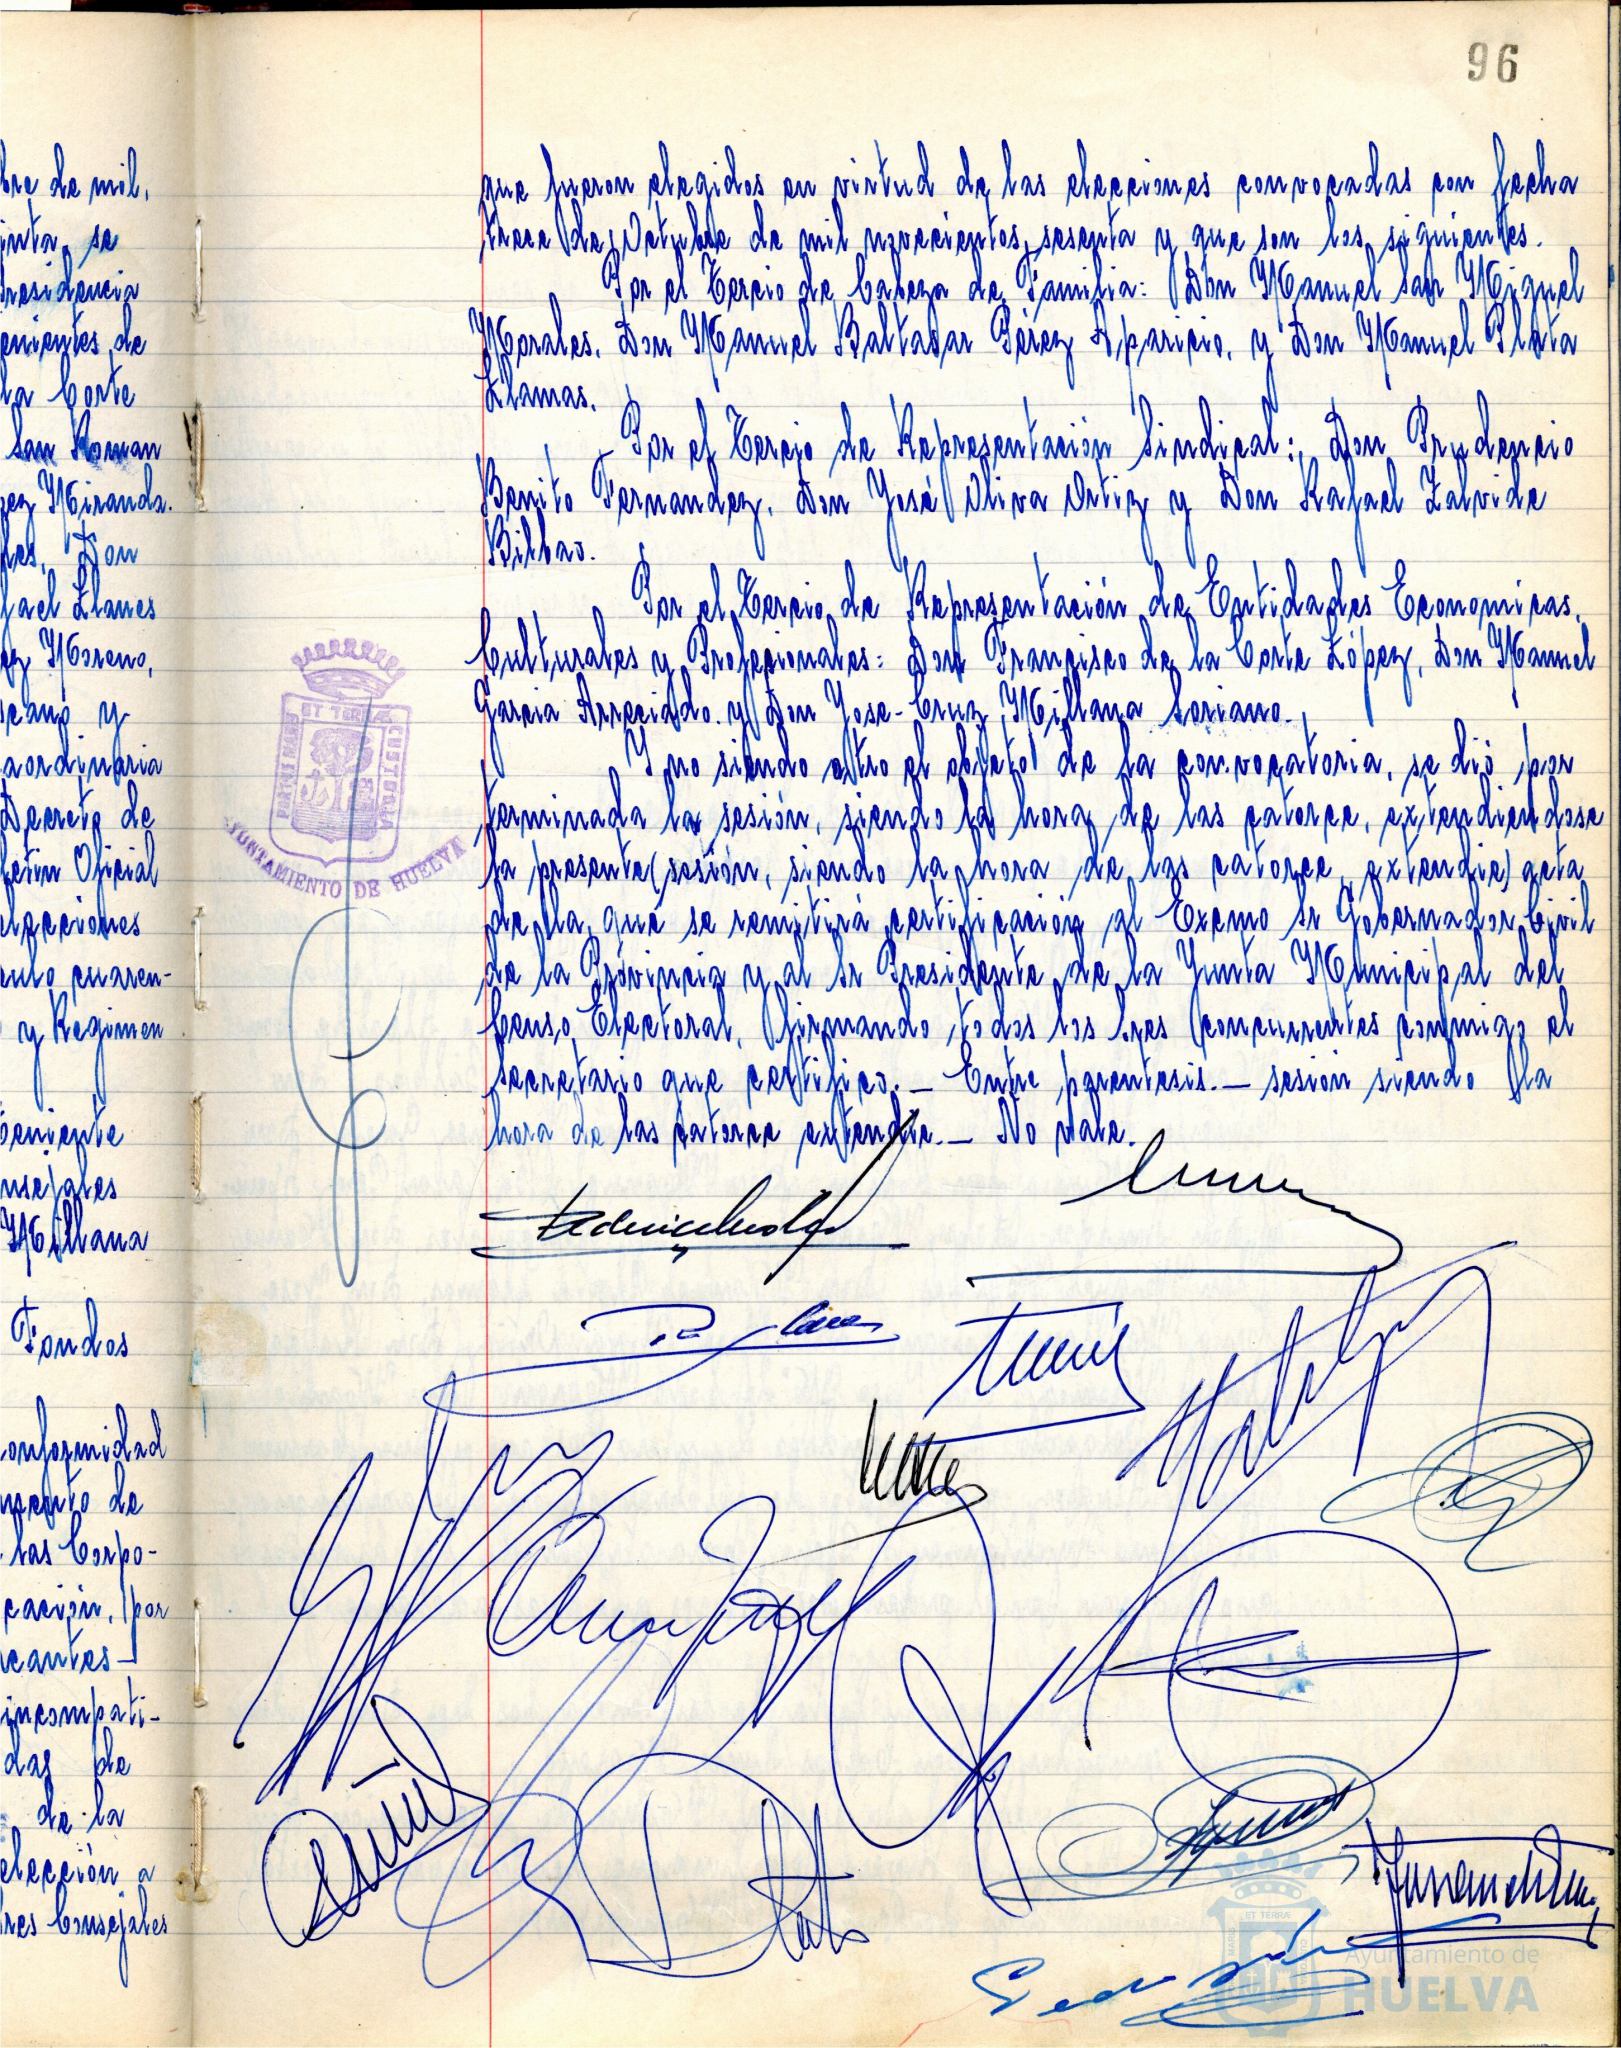 96
bre de mil,
inta, se
residencia
enientes de
la Corte
San Roman
ez Miranda.
les, Don
fael Llanes
ez Moreno,
cano y
aordinaria
Decreto de
letin Oficial
elecciones
culo cuaren-
y Regimen
teniente
nsejales
Millana
Fondos
onformidad
mento de
las Corpo-
cación, por
cantes-
incompati-
das de
de la
elección a
res Consejales
que fueron elegidos en virtud de las elecciones convocadas con fecha
trece de Octubre de mil novecientos sesenta y que son los siguientes.
Por el Tercio de Cabeza de Familia: Don Manuel San Miguel
Morales, Don Manuel Baltasar Pérez Aparicio, y Don Manuel Plata
Llamas.
Por el Tercio de Representación Sindical: Don Prudencio
Benito Fernandez, Don José Oliva Ortiz y Don Rafael Zalvide
Bilbao.
Por el Tercio de Representación de Entidades Economicas,
Culturales y Profesionales: Don Francisco de la Corte López, Don Manuel
Garcia Arreciado y Don Jose-Cruz Millana Soriano.
Y no siendo otro el objeto de la convocatoria, se dió por
terminada la sesión, siendo la hora de las catorce, extendiendose
la presente (sesión, siendo la hora de las catorce, extendie) acta
de la que se remitirá certificación al Excmo Sr Gobernador Civil
de la Provincia y al Sr Presidente de la Junta Municipal del
Censo Electoral, firmando todos los Sres concurrentes conmigo el
Secretario que certifico. — Entre parentesis. — sesion siendo la
hora de las catorce extendie. — No vale.
PORTUS MARIS ET TERRÆ CUSTODIA
AYUNTAMIENTO DE HUELVA
Plata
ET TERRÆ
Ayuntamiento de
HUELVA